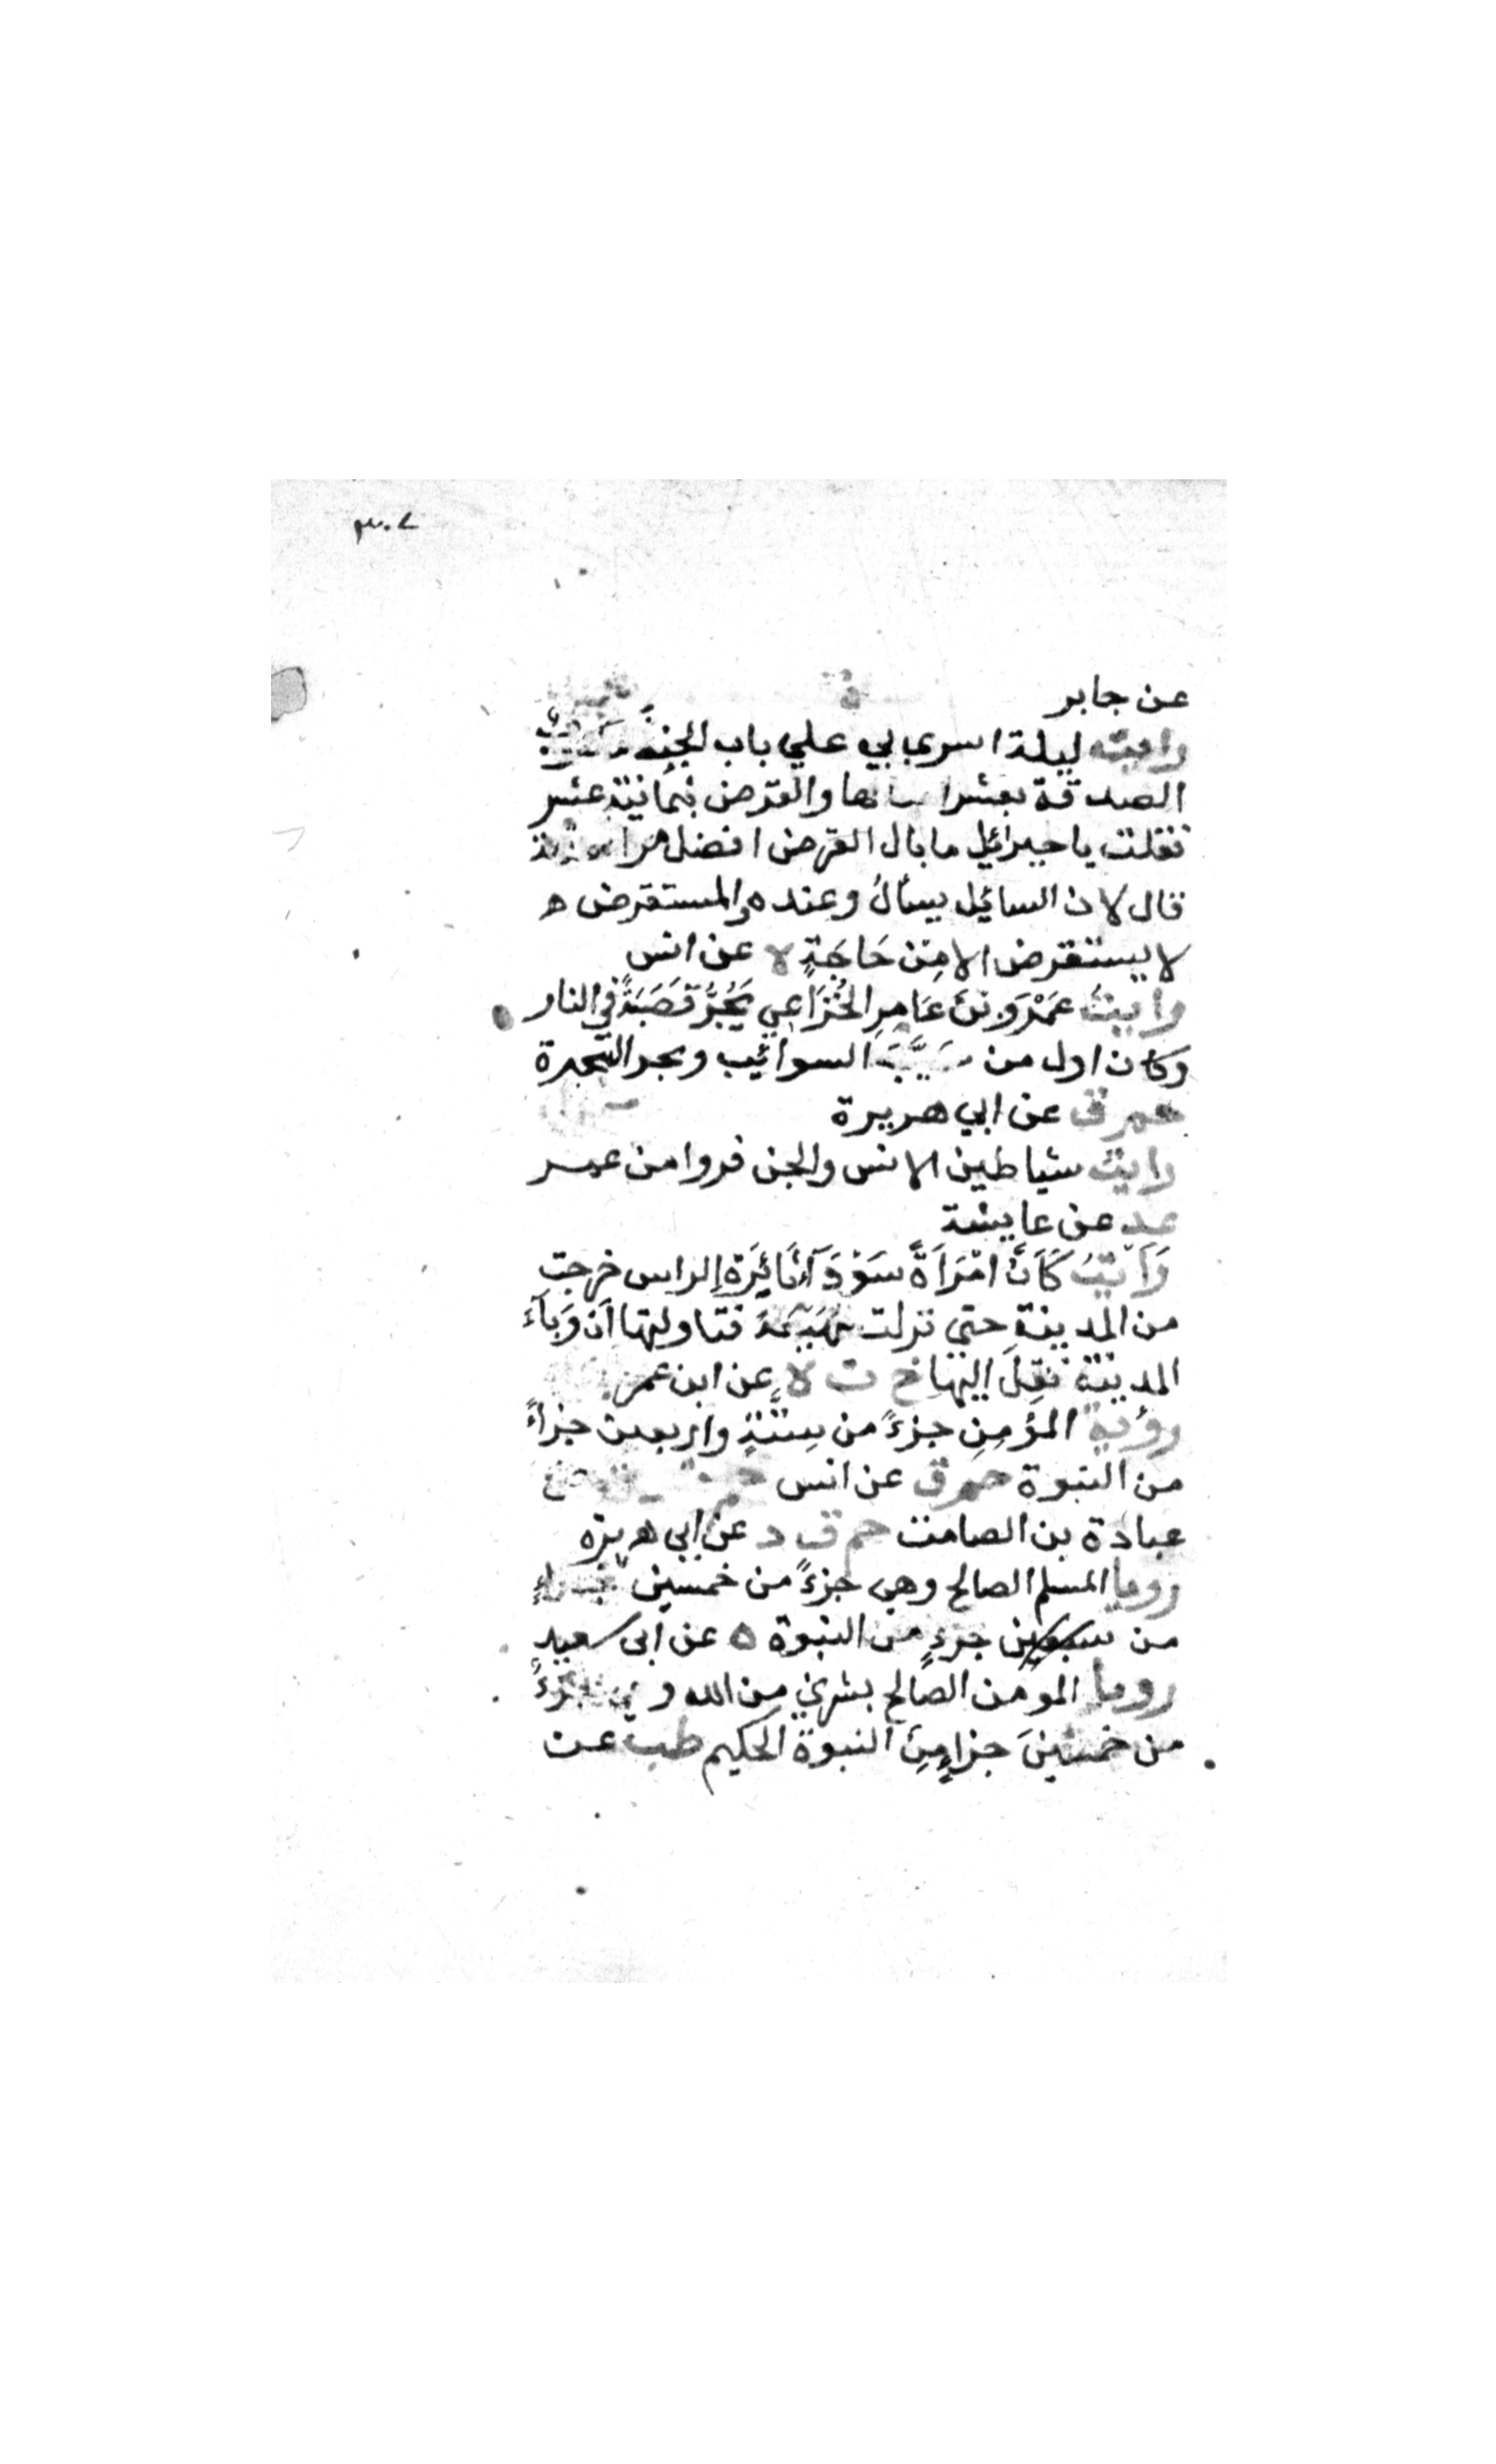 ٣٠٧
عن جابر
رايت ليلة اسري بي علي باب الجنة
الصدقة بعشر امثالها والقرض بثمانية عشر
فقلت يا جبرائيل ما بال القرض افضل من الصدقة
قال لان السائيل يسأل وعنده والمستقرض ه
لا يستقرض الا من حَاجَةٍ ه عن انس
رايت عَمْرَو بْنَ عَامِرِ الخُزَاعِي يَجُرُّ قَصَبَهُ في النار
وكان اول من سَيَّبَ السوائيب وبحر البحيرة
حم ق عن ابي هريرة
رايت شياطين الانس والجن فروا من عمر
عد عن عايشة
رَاَيْتُ كَاَنَّ امْرَاَةً سَوْدَآءَ ثَائِرَةَ الراس خرجت
من المدينةِ حتي نزلت مَهْيَعَةَ فتاولتها اَن وَبَآءَ
المدينة نُقِلَ اليها خ ت ه عن ابن عمر
رؤية المؤمِنِ جزءً من سِتَّةٍ واربعين جزاءً
من النبوة حم ق عن انس
عبادة بن الصامت حم ق د عن ابي هريره
رويا المسلم الصالح وهي جزءً من خمسين
من سبعين جزءٍ من النبوة ه عن ابي سعيد
رويا المومن الصالح بشري من الله و جزءً
من خمسينَ جزاءٍ مِنَ النبوة الحكيم طب عن